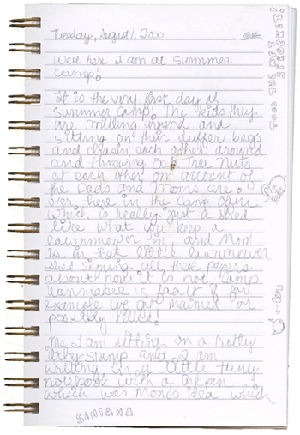 Tuesday, August 1, 2000
Well here I am at Summer
Camp!
It is the very first day of
Summer Camp. The kids they
are milling around and
sitting on their duffer bags
and chasing each other around
and throwing Nuts
at each other on account of
the Dads and Moms are
over here in the Camp
which is really just a shed
like what you keep a
lawnmower in, and Mom
is in that little lawnmower
shed signing all these papers
about how it is not Camp
fault if for
example we get Maimed or
possibly killed!
I am sitting on a
stump and I am
writing in a little teeny
notbook with a
which was Mom's idea which